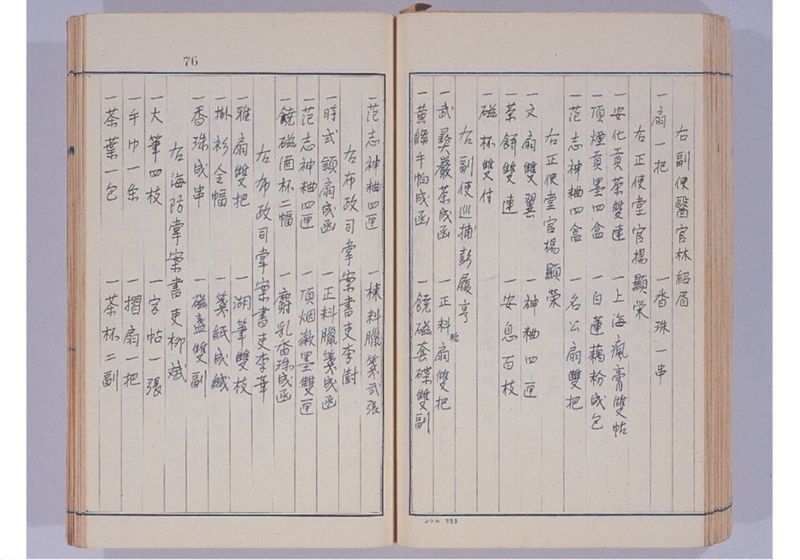 右副使醫官林紹眉
一扇一把 一香珠一串
右正使堂官楊顯栄
一安化貢茶雙連 一上海瘋膏雙帖
一頂煙貢墨四盒 一白蓮藕粉成包
一范志神粬四盒 一名公扇雙把
右正使堂官楊顯榮
一文扇雙翼 一神粬四匣
一茶餅雙連 一安息百枝
一磁杯雙付
右副使巡捕彭履亨
一武彜巖茶成函 一正料扇雙把
一黄縐手帕成函 一饒磁套碟雙副
76
一范志神粬四匣 一棟料臘箋弍張
右布政司掌案書吏李樹
一時式顧扇成函 一正料臘箋成函
一范志神粬四匣 一頂烟徽墨雙匣
一饒磁酒杯二幅 一麝乳香珠成函
右布政司掌案書吏李華
一雅扇雙把 一湖筆雙枝
一掛衫全幅 一箋紙成緘
一香珠成串 一磁盞雙副
右海防掌案書吏柳斌
一大筆四枝 一字帖一張
一手巾一条 一摺扇一把
一茶葉一包 一茶杯二副